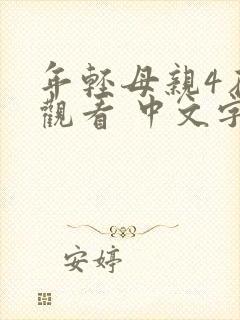 年輕母親4
觀看 中文字
安婷